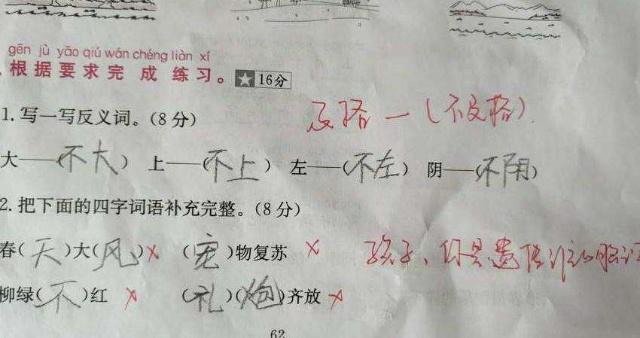 gēn jù yāo qiú wán chéng liàn xí
根据要求完成练习。★16分
1.写一写反义词。(8分) 及格一(不及格)
大——(不大) 上——(不上) 左——(不左) 阴——(不阴)
2.把下面的四字词语补充完整。(8分)
春(天)大(风)× (宠)物复苏 × 孩子、你是遗传谁的脑
柳绿(不)红 × (礼)(炮)齐放 ×
62